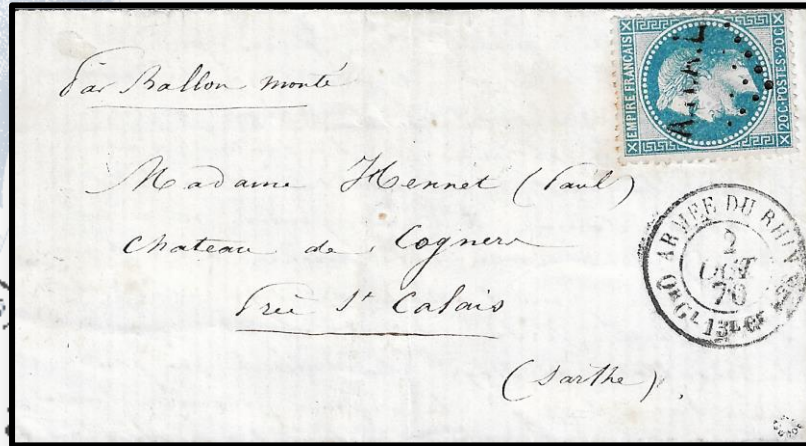 Par Ballon monté
EMPIRE FRANCAIS
20C·POSTES·20C
Madame Hennet (Paul)
Chateau de Cogners
Près St Calais
(Sarthe)
ARMÉE DU RHIN
2
OCT
70
QR GL 13E